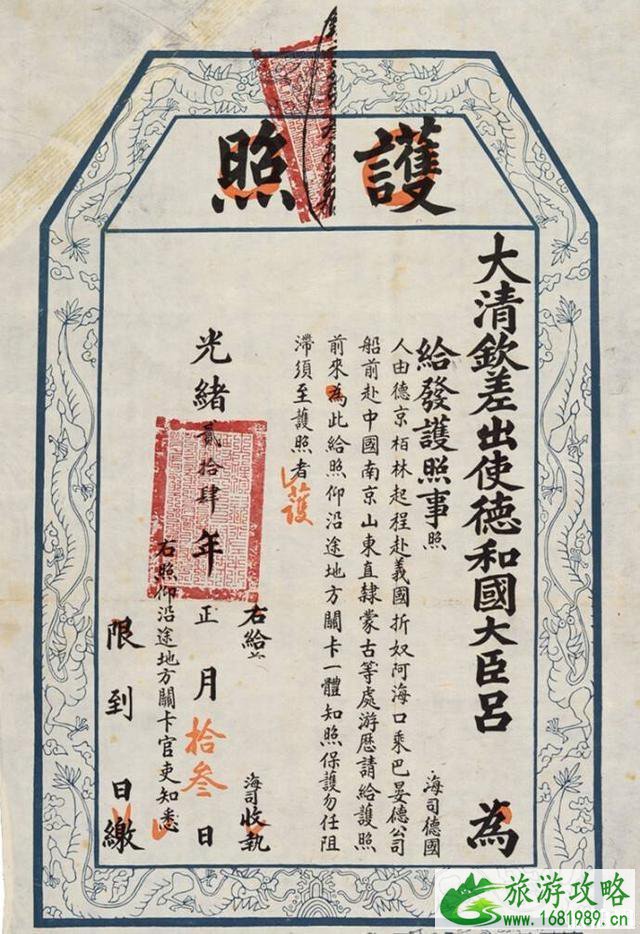 護照
大清欽差出使德和國大臣呂　為
給發護照事照　海司德國
人由德京栢林起程赴義國折奴阿海口乘巴晏德公司
船前赴中國南京山東直隸蒙古等處游歷請給護照
前來為此給照仰沿途地方關卡一體知照保護勿任阻
滯須至護照者
護
右給　海司收執
光緒貳拾肆年正月拾叁日
右照仰沿途地方關卡官吏知悉
限到　日繳
旅游攻略
www.1681989.cn